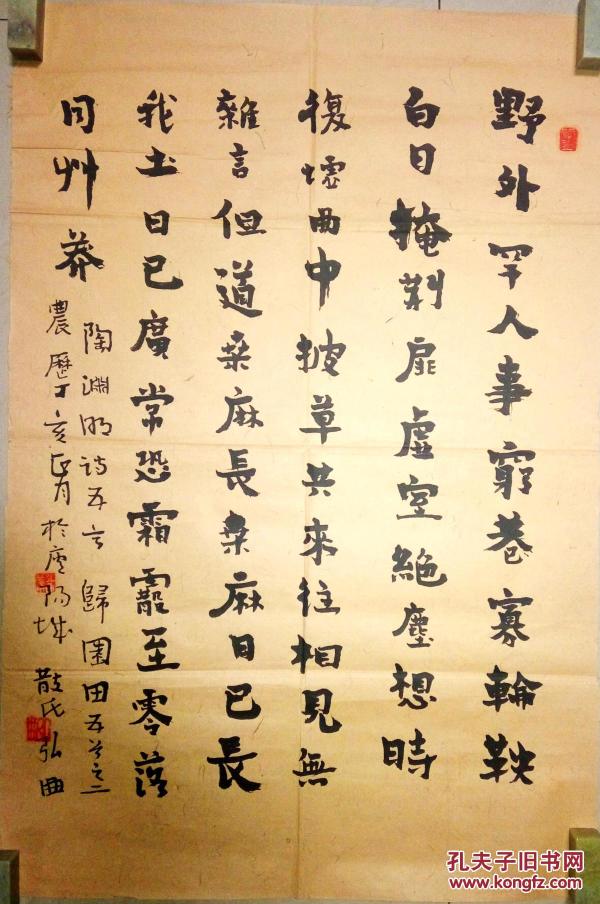 野外罕人事窮巷寡輪鞅
白日掩荆扉虛室絕塵想時
復墟曲中披草共來往相見無
雜言但道桑麻長桑麻日已長
我土日已廣常恐霜霰至零落
同艸莽
陶淵明詩五言歸園田五首之二
農歷丁亥正月於陽城散氏弘曲
孔夫子旧书网
www.kongfz.com